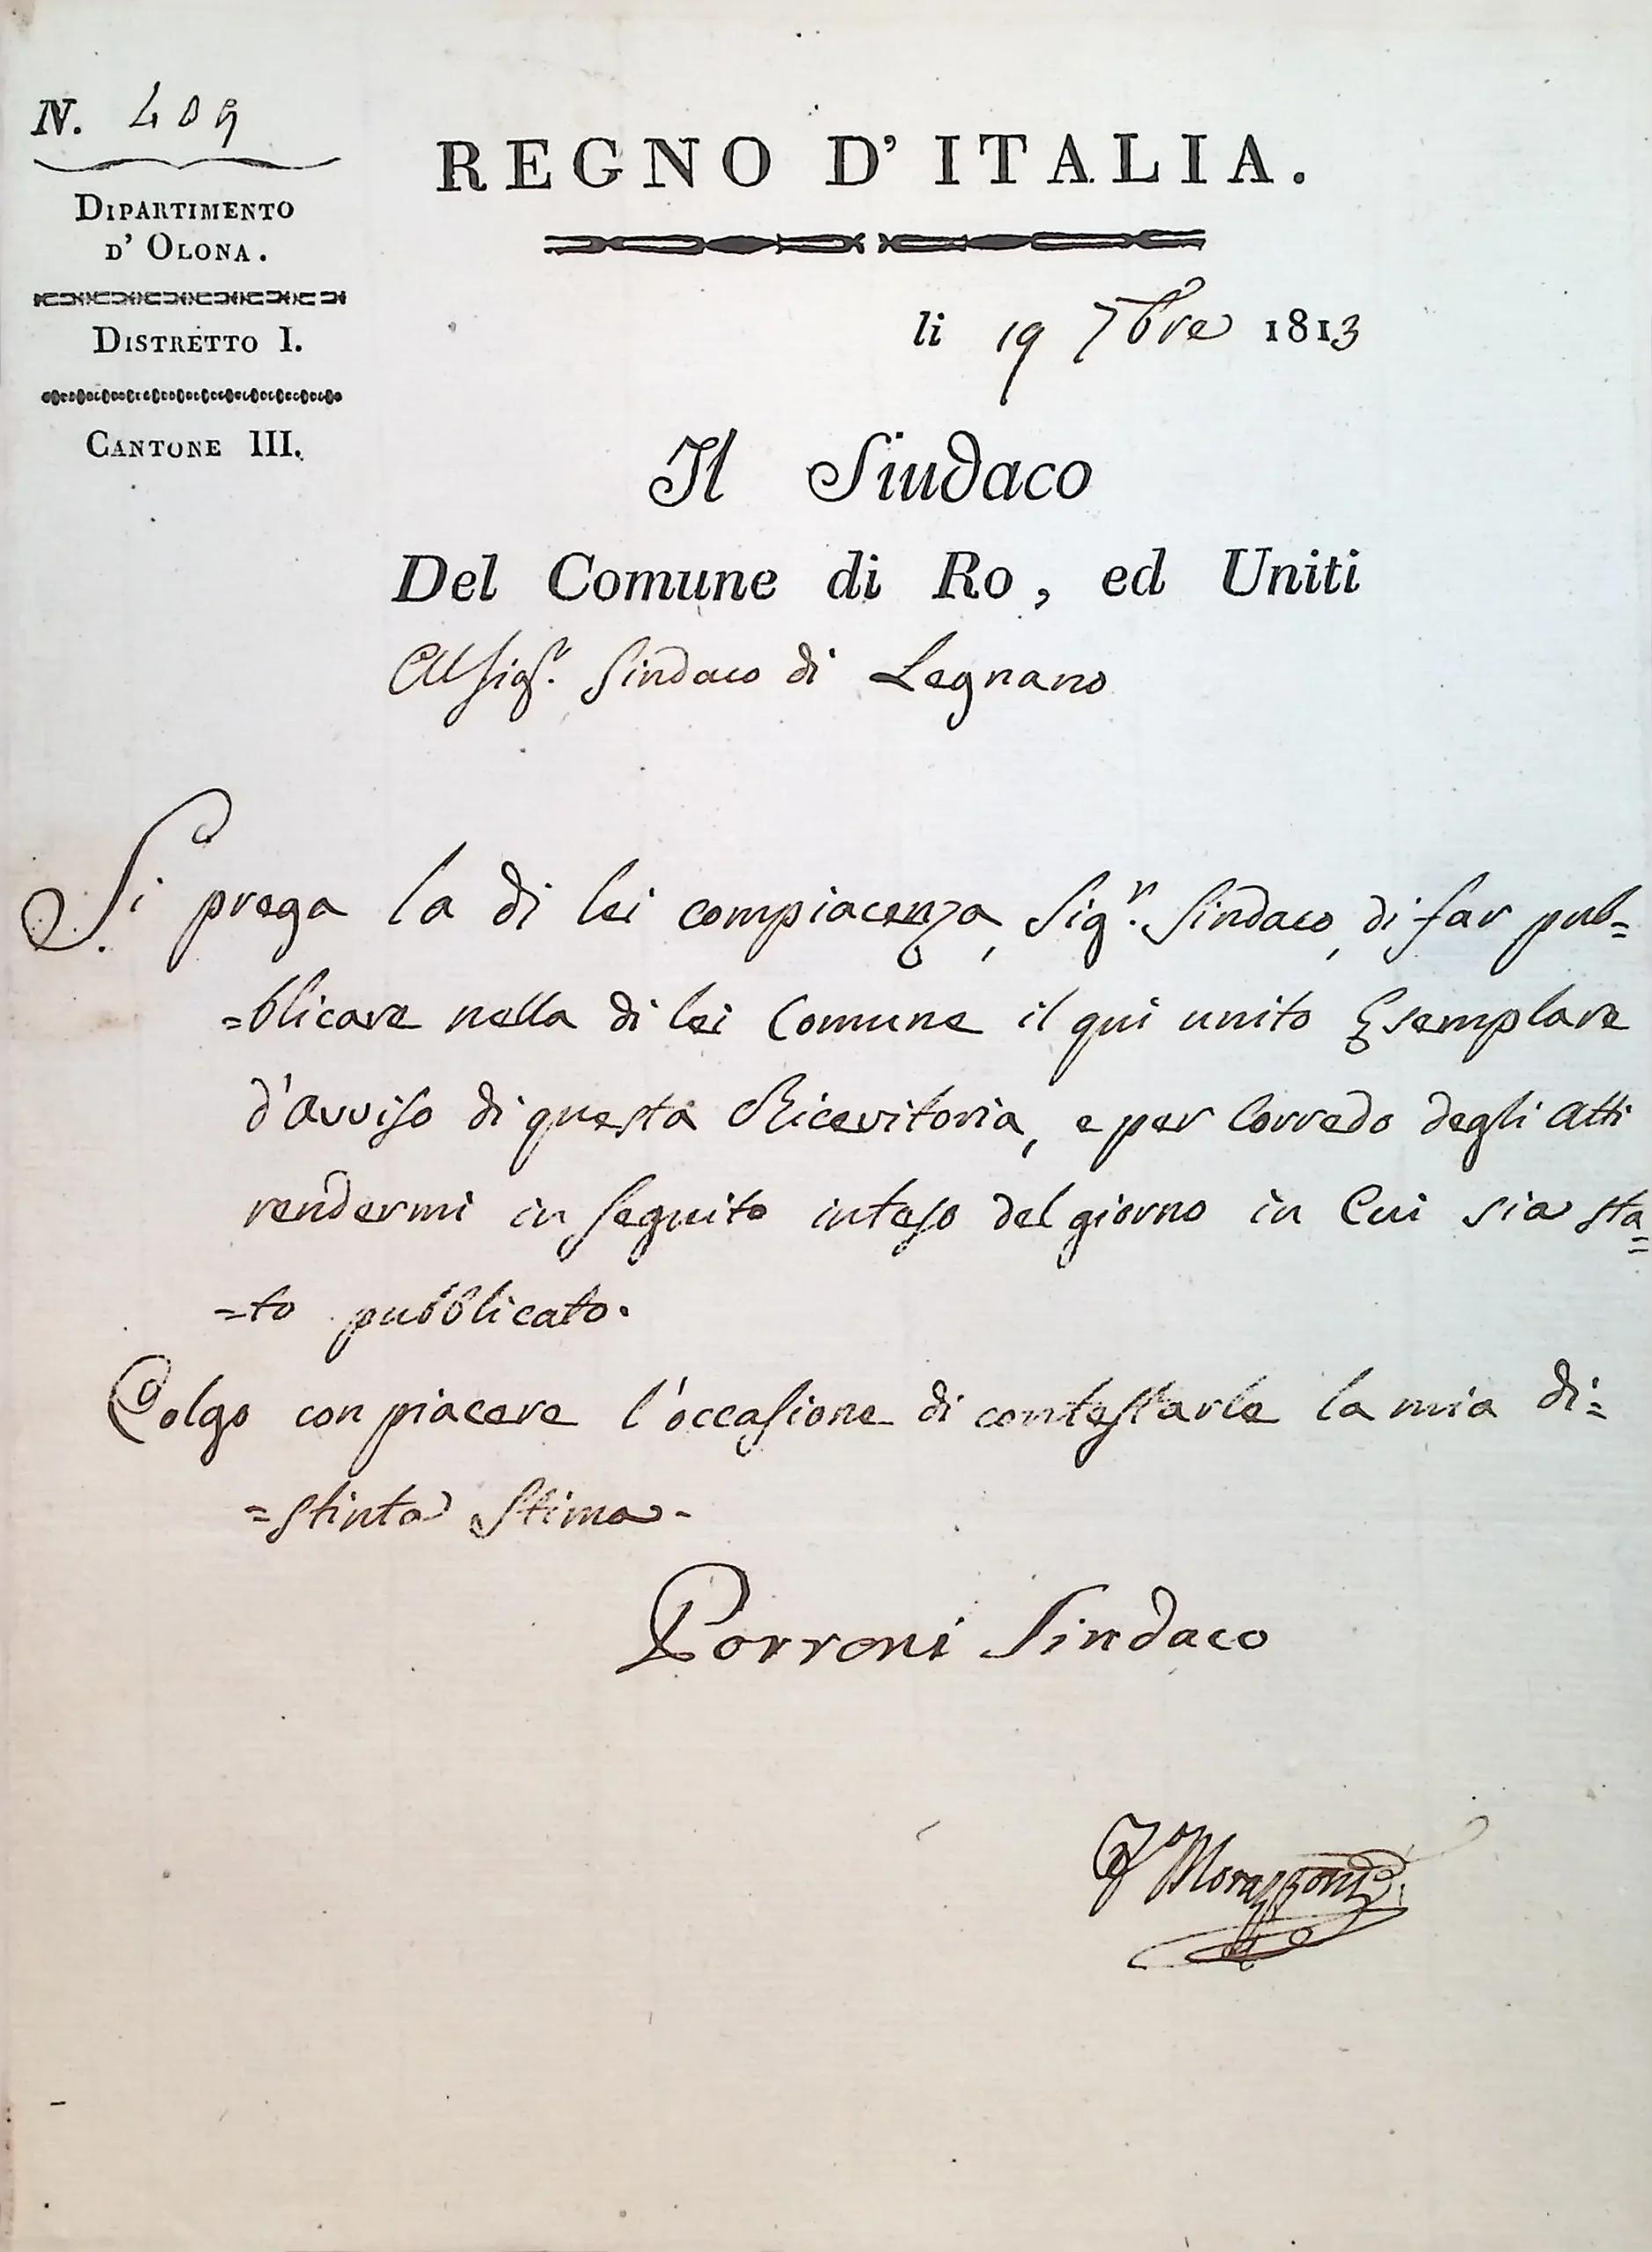 N. 409
DIPARTIMENTO
D' OLONA.
DISTRETTO I.
CANTONE III.
REGNO D' ITALIA.
li 19 7bre 1813
Il Sindaco
Del Comune di Ro, ed Uniti
Al Sigr. Sindaco di Legnano
Si prega la di lei compiacenza, Sigr. Sindaco, di far pub=
=blicare nella di lei Comune il qui unito Esemplare
d'avviso di questa Ricevitoria, e per Corredo degli Atti
rendermi in seguito inteso del giorno in Cui sia sta=
=to pubblicato.
Colgo con piacere l'occasione di contestarle la mia di=
=stinta Stima.
Porroni Sindaco
Morazzoni